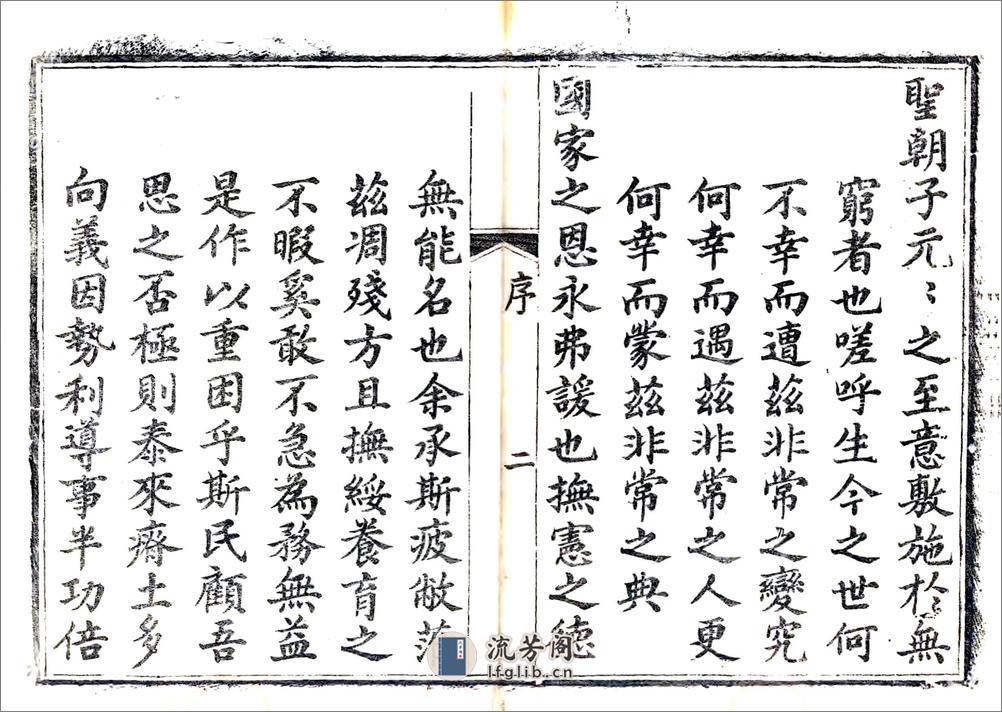 聖朝子元〻之至意敷施於無
窮者也嗟呼生今之世何
不幸而遭茲非常之變究
何幸而遇茲非常之人更
何幸而蒙茲非常之典
國家之恩永弗諼也撫憲之德
序
二
無能名也余承斯疲敝
茲凋殘方且撫綏養育之
不暇奚敢不急為務無益
是作以重困乎斯民顧吾
思之否極則泰來瘠土多
向義因勢利導事半功倍
流芳阁
lfglib.cn